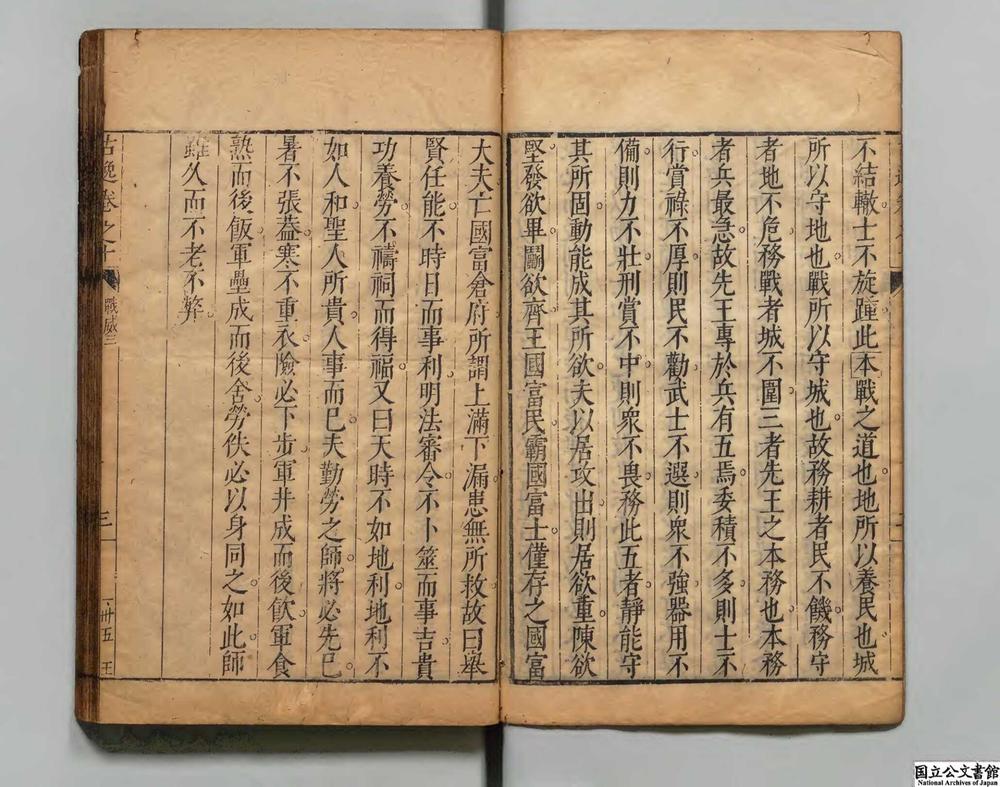 不結轍士不旋踵此本戰之道也地所以養民也城
所以守地也戰所以守城也故務耕者民不饑務守
者地不危務戰者城不圍三者先王之本務也本務
者兵最急故先王專於兵有五焉委積不多則士不
行賞祿不厚則民不勸武士不選則衆不強器用不
備則力不壯刑賞不中則衆不畏務此五者靜能守
其所固動能成其所欲夫以居攻出則居欲重陳欲
堅發欲畢鬭欲齊王國富民霸國富士僅存之國富
大夫亡國富倉府所謂上滿下漏患無所救故曰舉
賢任能不時日而事利明法審令不卜筮而事吉貴
功養勞不禱祠而得福又曰天時不如地利地利不
如人和聖人所貴人事而已夫勤勞之師將必先已
暑不張蓋寒不重衣險必下步軍井成而後飲軍食
熟而後飯軍壘成而後舍勞佚必以身同之如此師
雖久而不老不弊
卷之十
戰威三
三
卅五
王
国立公文書館
National Archives of Japan